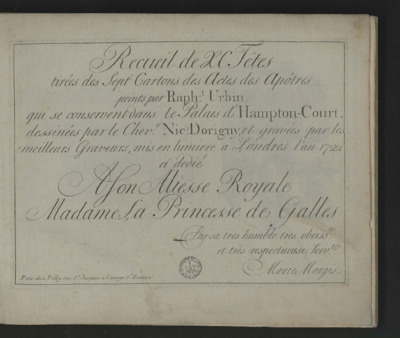 Recueil de XC Têtes
tirées des Sept Cartons des Actes des Apôtres
peints par Raph.l Urbin,
qui se conservent dans le Palais d'Hampton-Court,
dessinées par le Chev.r Nic: Dorigny, et gravées par les
meilleurs Graveurs, mis en lumiere a Londres l'an 1722
et dedié
A Son Altesse Royale
Madame La Princesse de Galles
Par sa tres humble, tres obeiss.te
et très respectueuse Serv.te
Marie Monges